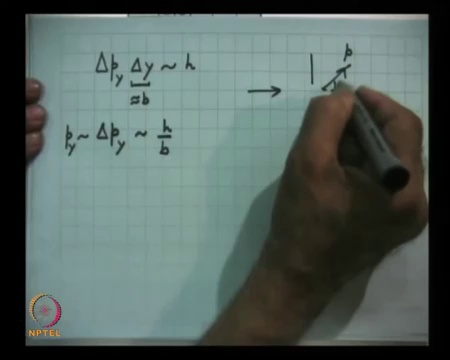 Δp_y Δy ~ h
≈b
p_y ~ Δp_y ~ h/b
p
NPTEL